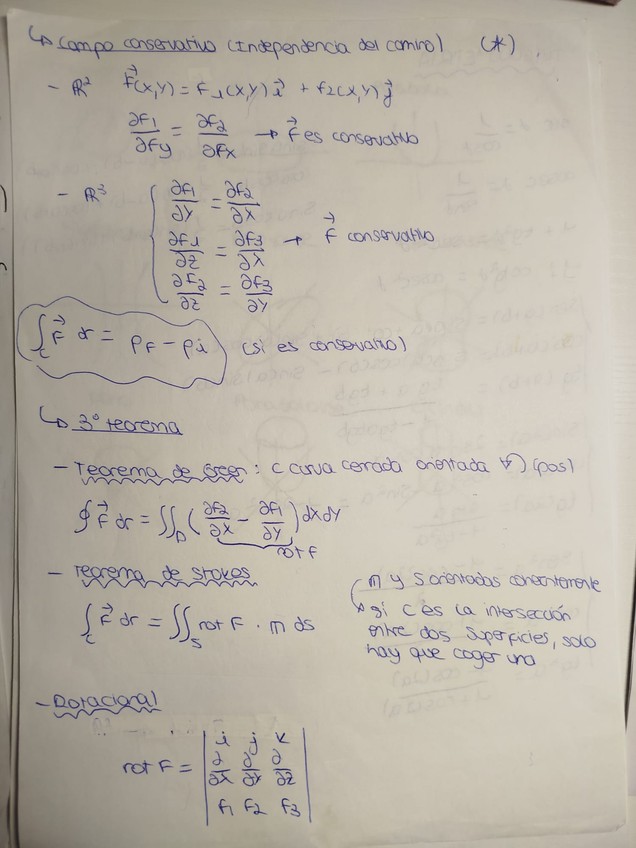 ↳ Campo conservativo (Independencia del camino) (*)
- ℝ² F⃗(x,y) = f₁(x,y) i⃗ + f₂(x,y) j⃗
∂f₁/∂fy = ∂f₂/∂fx → F⃗ es conservativo
- ℝ³ { ∂f₁/∂y = ∂f₂/∂x
∂f₁/∂z = ∂f₃/∂x → F⃗ conservativo
∂f₂/∂z = ∂f₃/∂y
∫_C F⃗ dr = P_F - P_i (si es conservativo)
↳ 3º teorema
- Teorema de Green: C curva cerrada orientada (pos)
∮ F⃗ dr = ∬_D (∂f₂/∂x - ∂f₁/∂y) dx dy
rot F
- Teorema de Stokes
∫_C F⃗ dr = ∬_S rot F · m ds
m y S orientados coherentemente
si C es la intersección
entre dos superficies, solo
hay que coger una
- Rotacional
rot F = | i j k |
| ∂/∂x ∂/∂y ∂/∂z |
| f₁ f₂ f₃ |